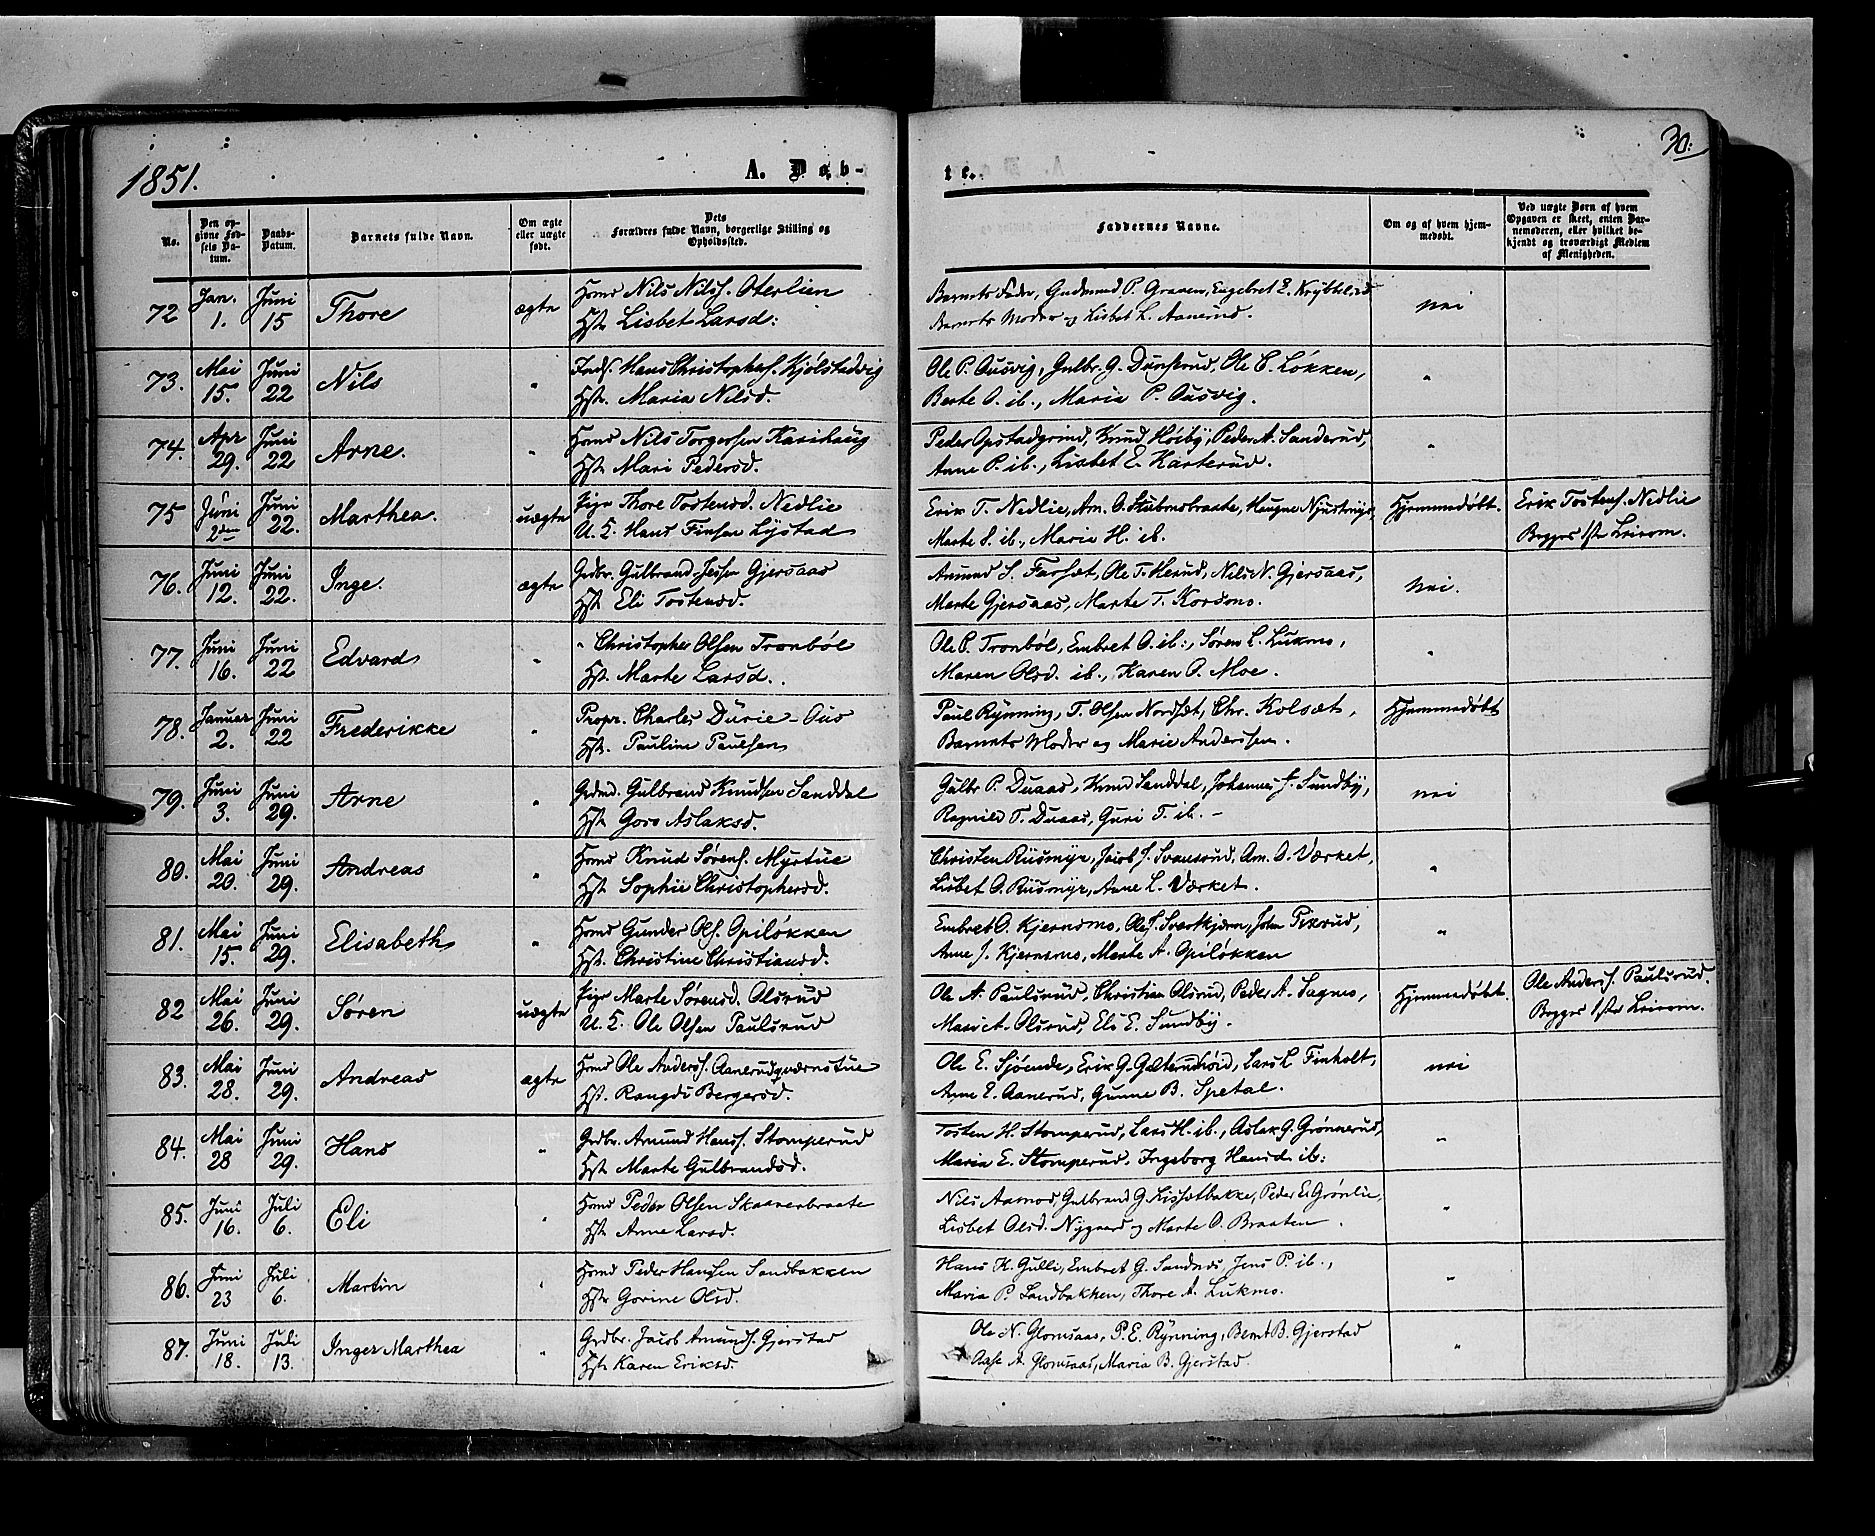 1851.
A. Dåb-
te.
30.
No.
Den opgivne Fødsels Datum.
Daabs-Datum.
Barnets fulde Navn.
Om ægte eller uægte født.
Dets Forældres fulde Navn, borgerlige Stilling og Opholdssted.
Faddernes Navne.
Om og af hvem hjemmedøbt.
Ved uægte Børn af hvem Opgaven er skeet, enten Barnemoderen, eller hvilket bekjendt og troværdigt Medlem af Menigheden.
72 Jan. 1. Juni 15 Thore ægte Hmd Nils Nilss. Oterlien
Hst. Lisbet Larsd:
Barnets Fader, Gudmund P. Graven, Engebret E.
Barnets Moder og Lisbet L. Aanerud.
nei
73. Mai 15. Juni 22 Nils " Inds. Hans Christophers. Kjölstadvig
Hst. Maria Nilsd.
Ole P. Ousvig, Gulbr. G. Dunserud, Ole C. Løkken,
Berte O. ib., Maria P. Ousvig.
"
74. Apr 29. Juni 22 Arne. " Hmd Nils Torgersen Karihaug
Hst. Mari Pedersd.
Peder Opstadgrind, Knud Höiby, Peder A. Sanderud,
Anne P. ib., Lisbet E. Karterud.
"
75 Juni 2den Juni 22. Marthea. uægte Pige Thore Tostensd. Nedlie
U. K. Hans Finsen Lystad
Erik T. Nedlie, Am. O. Stubmobraate, Haagne
Marte S. ib., Maria H. ib.
Hjemmedøbt.
Erik Tostens. Nedlie
Begges 1ste Leierm.
76. Juni 12. Juni 22. Inge. ægte Grdbr. Gulbrand Jessen Gjersaas
Hst. Eli Tostensd.
Amund S. Farsæt, Ole T. Herud, Nils N. Gjersaas,
Marte Gjersaas, Marte T. Korsmo.
Nei.
77. Juni 16. Juni 22 Edvard " " Christopher Olsen Tronböl
Hst. Marte Larsd.
Ole P. Tronböl, Embret O. ib., Søren L. Lukmo,
Maren Olsd. ib., Karen P. Moe.
"
78. Januar 2. Juni 22 Frederikke " Propr. Charles Durie - Ous
Hst. Pauline Paulsen
Paul Rynning, T. Olsen Nordsæt, Chr. Kolsæt,
Barnets Moder og Marie Anderssen.
Hjemmedøbt
79. Juni 3. Juni 29. Arne " Grdmd. Gulbrand Knudsen Sanddal
Hst Goro Aslaksd.
Gulbr P. Duaas, Knud Sanddal, Johannes J. Sundby,
Ragnild T. Duaas, Guri T. ib. -
nei
80. Mai 20. Juni 29. Andreas " Hmd Knud Sörens. Myrtue
Hst. Sophie Christophersd.
Christen Risesmyr, Jacob J. Svansrud, Am. O. Værket,
Lisbet O. Risesmyr, Anne L. Værket.
"
81. Mai 15. Juni 29. Elisabeth " Hmd Gunder Ols. Opiløkken
Hst. Christine Christiansd.
Embret O. Kjernsmo, Ole J. Svartkjern, John Pikerud,
Anne J. Kjernsmo, Marte A. Opiløkken
"
82 Mai 26. Juni 29. Sören uægte Pige Marte Sörensd. Olsrud
U. K. Ole Olsen Paulsrud
Ole A. Paulsrud, Christian Olsrud, Peder A. Sagmo,
Mari A. Olsrud, Eli E. Sundby.
Hjemmedøbt.
Ole Anders. Paulsrud.
Begges 1ste Leierm.
83. Mai 28. Juni 29. Andreas ægte Hmd Ole Anders. Aanerudqværnstue
Hst. Rangdi Bergersd.
Ole E. Sjøende, Erik G. Galterudhöid, Lars L Finholt,
Anne E. Aanerud, Gunne B. Spetal.
nei
84. Mai 28 Juni 29. Hans " Grdbr. Amund Hans. Stomperud
Hst. Marte Gulbrandsd.
Tosten H. Stomperud, Lars H. ib., Aslak G. Grönnerud,
Maria E. Stomperud, Ingeborg Hansd. ib:
"
85. Juni 16. Juli 6. Eli " Hmd Peder Olsen Skaanerbraate
Hst. Anne Larsd.
Nils Aamod, Gulbrand G. Kissætbakke, Peder E. Grönlie,
Lisbet Olsd. Nygaard og Marte O. Braaten.
"
86. Juni 23 Juli 6. Martin " Hmd Peder Hansen Sandbakken
Hst. Gorine Olsd.
Hans K. Gulli, Embret G. Sandnes, Jens P. ib.,
Maria P. Sandbakken, Thore A. Lukmo.
"
87. Juni 18. Juli 13. Inger Marthea " Grdbr. Jacob Amunds. Gjerstad
Hst. Karen Eriksd.
Ole N. Glomsaas, P. E. Rynning, Bernt B. Gjerstad
Aase A. Glomsaas, Maria B. Gjerstad.
"